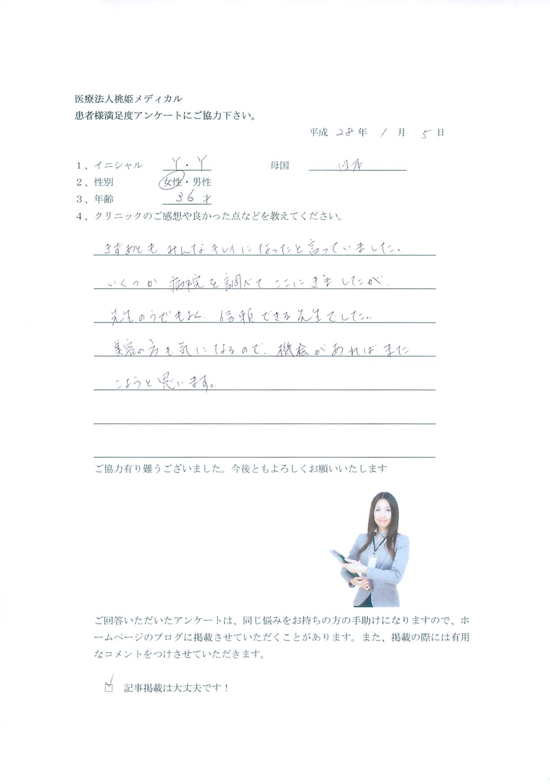 医療法人桃姫メディカル
患者様満足度アンケートにご協力下さい。
平成 28 年 1 月 5 日
1、イニシャル Y・Y 母国 日本
2、性別 女性・男性
3、年齢 36才
4、クリニックのご感想や良かった点などを教えてください。
みんなキレイになったと言っていました。
いくつか病院を調べてここにきましたが、
先生のうでもよく、信頼できる先生でした。
美容の方も気になるので、機会があればまた
こようと思います。
ご協力有り難うございました。今後ともよろしくお願いいたします
ご回答いただいたアンケートは、同じ悩みをお持ちの方の手助けになりますので、ホ
ームページのブログに掲載させていただくことがあります。また、掲載の際には有用
なコメントをつけさせていただきます。
記事掲載は大丈夫です！